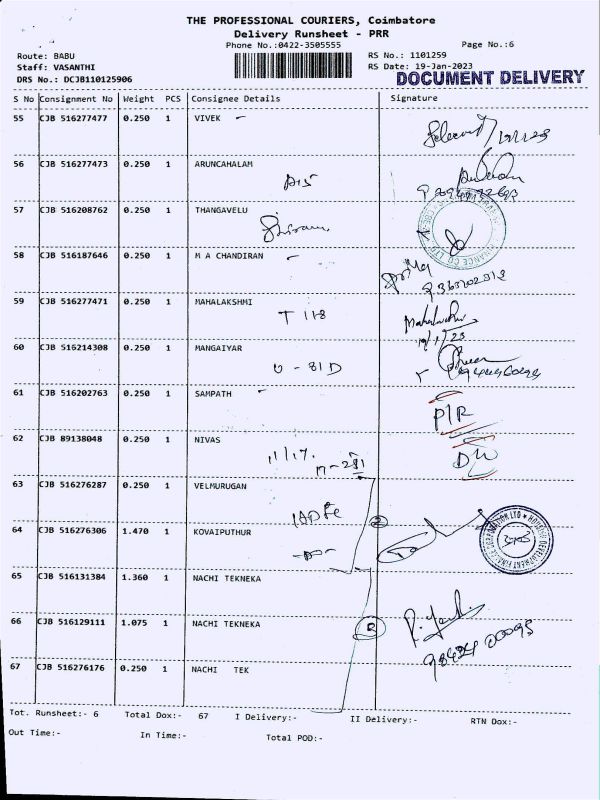 THE PROFESSIONAL COURIERS, Coimbatore
Delivery Runsheet - PRR
Phone No.:0422-3505555
Page No.:6
Route: BABU
RS No.: 1101259
Staff: VASANTHI
RS Date: 19-Jan-2023
DRS No.: DCJB110125906
DOCUMENT DELIVERY
S No Consignment No Weight PCS Consignee Details Signature
55 CJB 516277477 0.250 1 VIVEK
56 CJB 516277473 0.250 1 ARUNCAHALAM
57 CJB 516208762 0.250 1 THANGAVELU
58 CJB 516187646 0.250 1 M A CHANDIRAN
59 CJB 516277471 0.250 1 MAHALAKSHMI
T 118
19/1/23
60 CJB 516214308 0.250 1 MANGAIYAR
U - 81D
61 CJB 516202763 0.250 1 SAMPATH
P/R
62 CJB 89138048 0.250 1 NIVAS
63 CJB 516276287 0.250 1 VELMURUGAN
64 CJB 516276306 1.470 1 KOVAIPUTHUR
65 CJB 516131384 1.360 1 NACHI TEKNEKA
66 CJB 516129111 1.075 1 NACHI TEKNEKA
67 CJB 516276176 0.250 1 NACHI TEK
Tot. Runsheet:- 6 Total Dox:- 67 I Delivery:- II Delivery:- RTN Dox:-
Out Time:- In Time:- Total POD:-